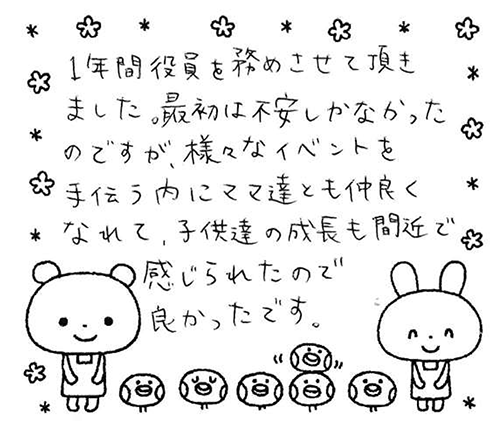 1年間役員を務めさせて頂き
ました。最初は不安しかなかった
のですが、様々なイベントを
手伝う内にママ達とも仲良く
なれて、子供達の成長も間近で
感じられたので
良かったです。